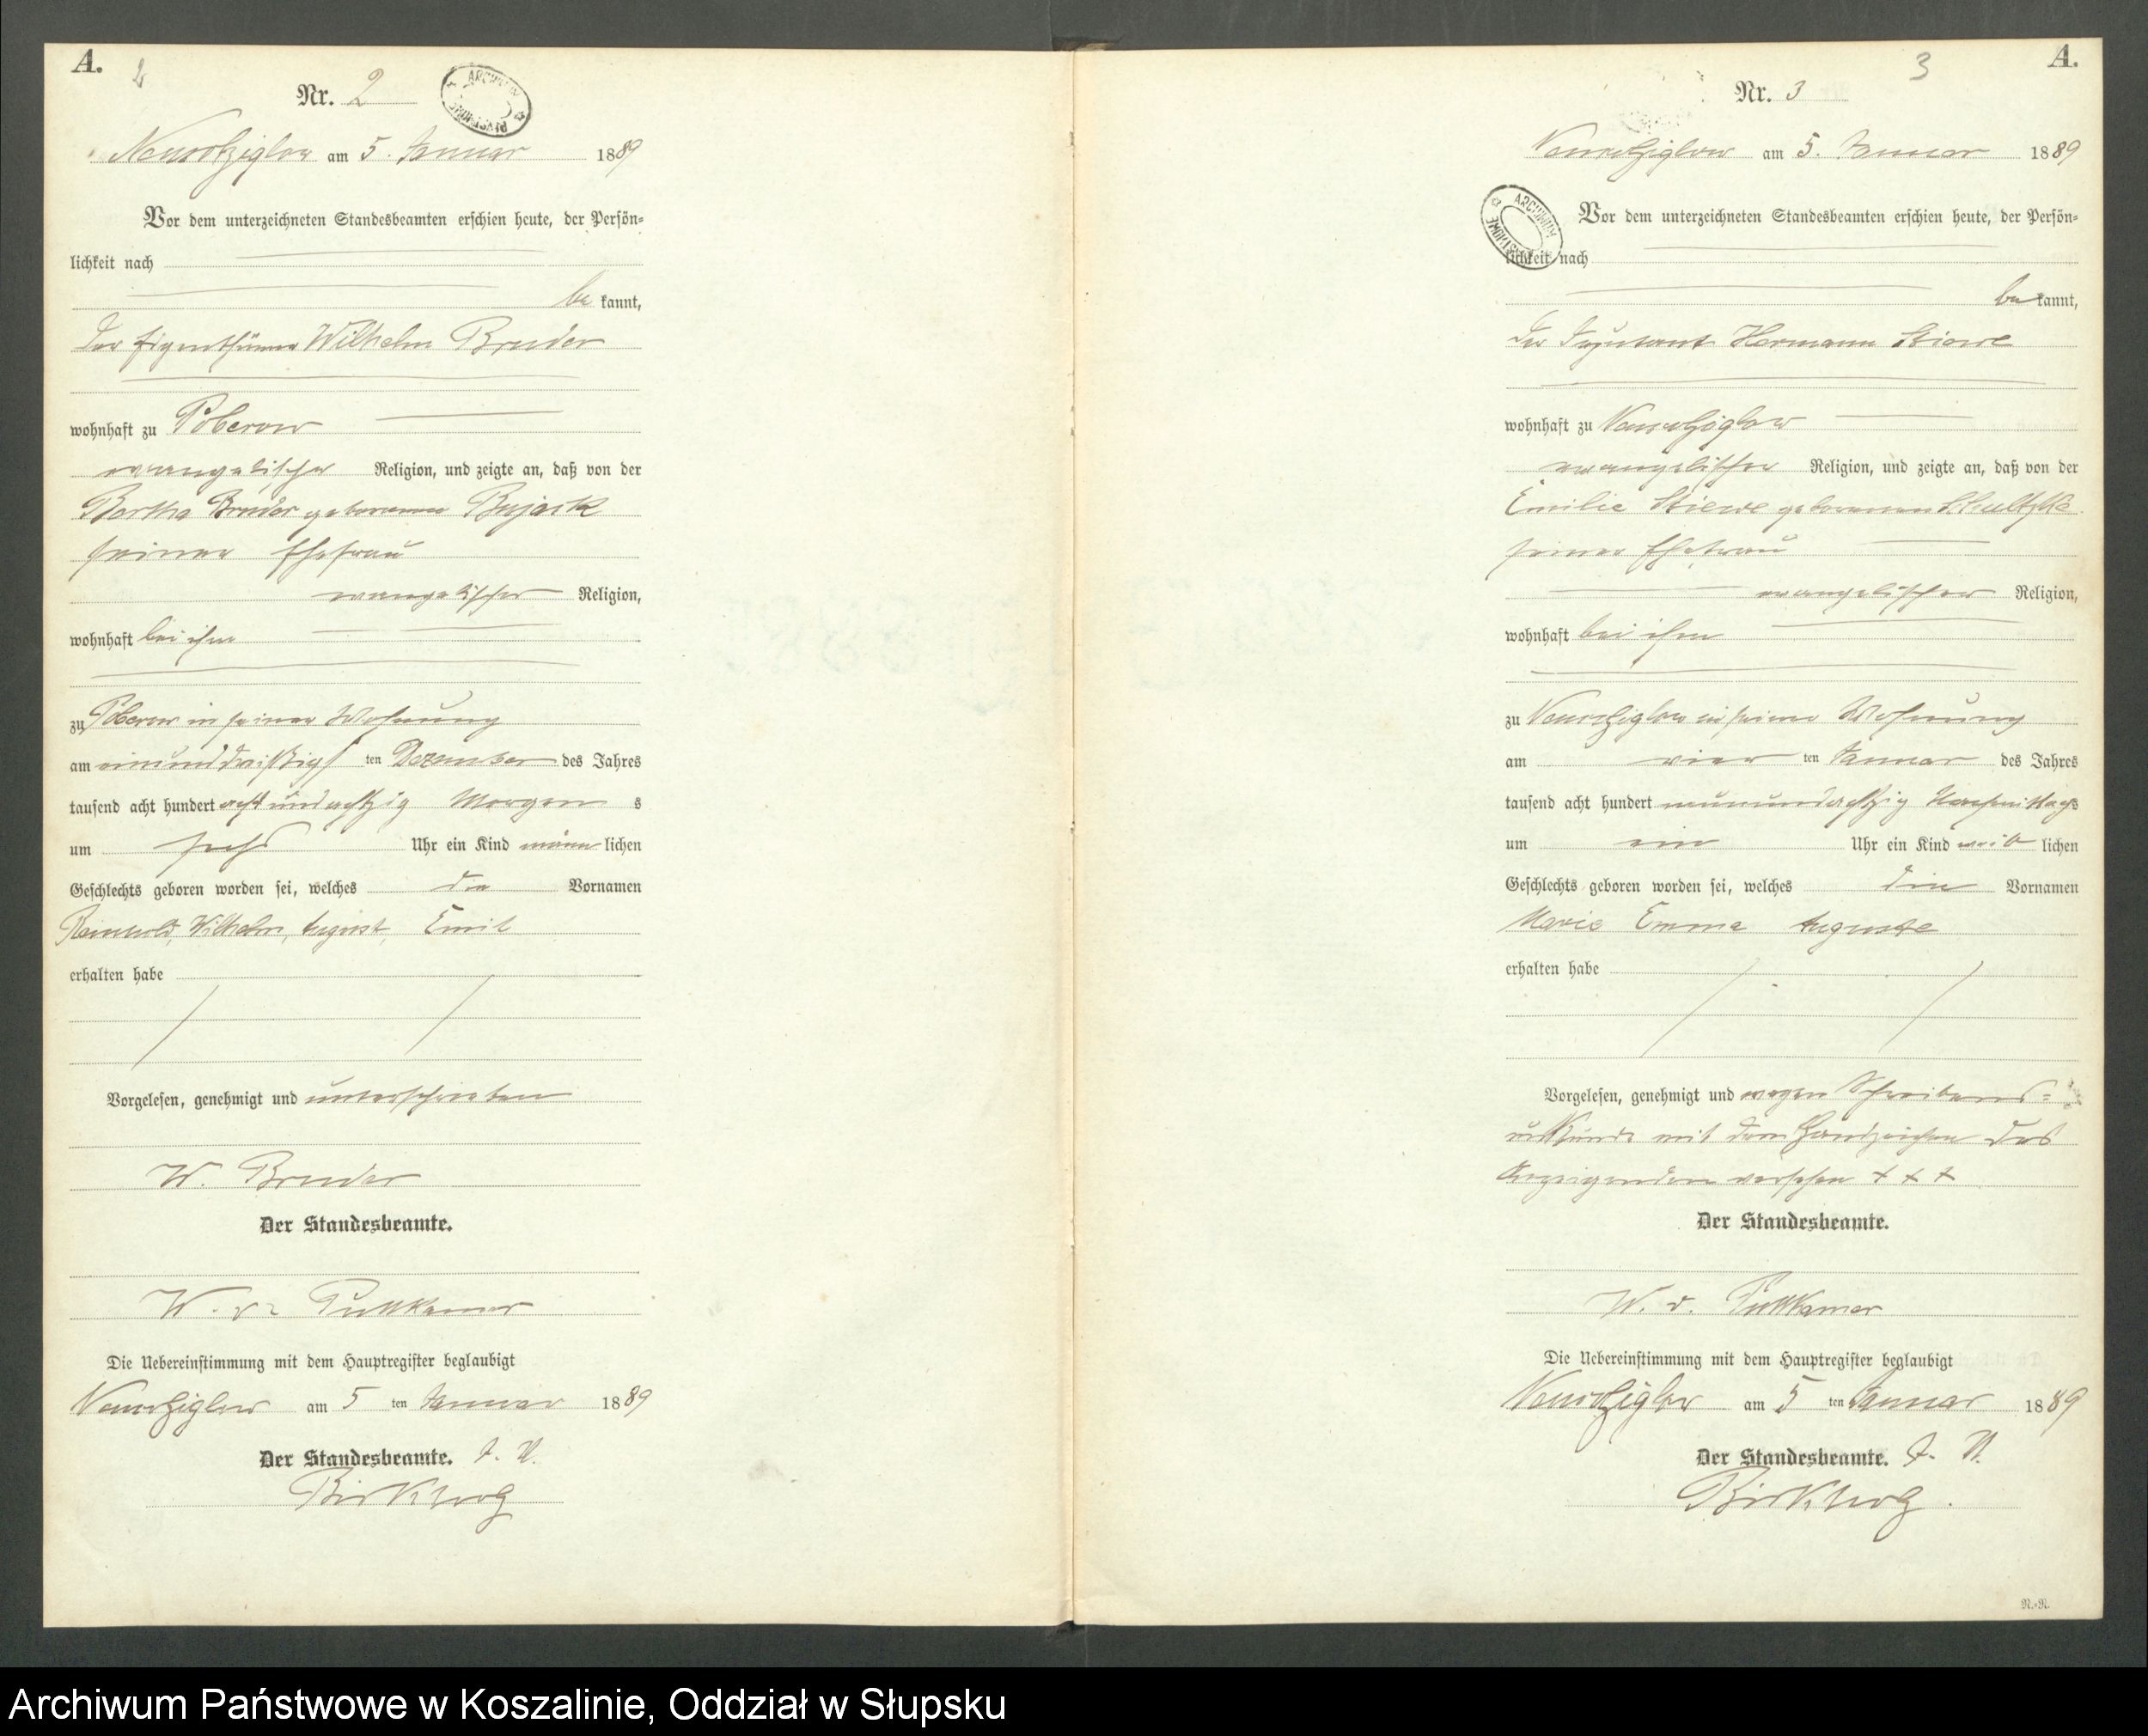 A.
2
Nr. 2
ARCHIWUM PAŃSTWOWE
am 5. Januar 1889
Vor dem unterzeichneten Standesbeamten erschien heute, der Persön=
lichkeit nach
be kannt,
der Eigenthümer Wilhelm Bruder
wohnhaft zu Poberow
evangelischer Religion, und zeigte an, daß von der
Bertha Bruder geborenen Bujack
seiner Ehefrau
evangelischer Religion,
wohnhaft bei ihm
zu Poberow in seiner Wohnung
am einunddreißigs ten Dezember des Jahres
tausend acht hundert achtundachtzig Morgen s
um sechs Uhr ein Kind männ lichen
Geschlechts geboren worden sei, welches die Vornamen
Reinhold, Wilhelm, August, Emil
erhalten habe
Vorgelesen, genehmigt und unterschrieben
W. Bruder
Der Standesbeamte.
W. v. Puttkamer
Die Uebereinstimmung mit dem Hauptregister beglaubigt
am 5 ten Januar 1889
Der Standesbeamte.
Birkholz
3
A.
Nr. 3
am 5. Januar 1889
ARCHIWUM PAŃSTWOWE
Vor dem unterzeichneten Standesbeamten erschien heute, der Persön=
lichkeit nach
be kannt,
der Deputant Hermann Stiewe
wohnhaft zu
evangelischer Religion, und zeigte an, daß von der
Emilie Stiewe geborenen
seiner Ehefrau
evangelischer Religion,
wohnhaft bei ihm
zu in seiner Wohnung
am vier ten Januar des Jahres
tausend acht hundert neunundachtzig Nachmittags
um ein Uhr ein Kind weib lichen
Geschlechts geboren worden sei, welches die Vornamen
Marie Emma Auguste
erhalten habe
Vorgelesen, genehmigt und wegen Schreibens=
unkunde mit dem Handzeichen des
Anzeigenden versehen + + +
Der Standesbeamte.
W. v. Puttkamer
Die Uebereinstimmung mit dem Hauptregister beglaubigt
am 5 ten Januar 1889
Der Standesbeamte.
Birkholz.
N.=N.
Archiwum Państwowe w Koszalinie, Oddział w Słupsku